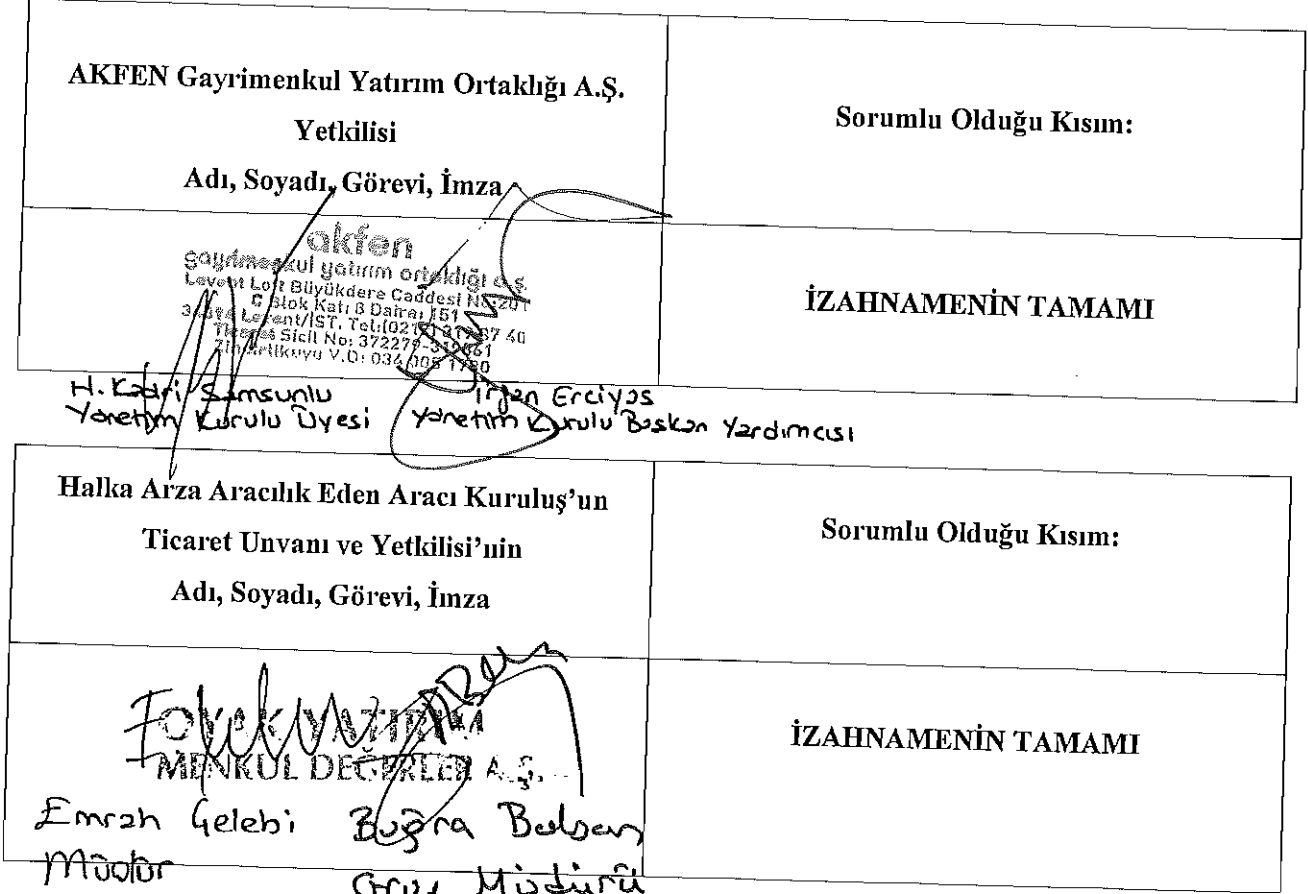 AKFEN Gayrimenkul Yatırım Ortaklığı A.Ş.
Yetkilisi
Adı, Soyadı, Görevi, İmza
Sorumlu Olduğu Kısım:
akfen
gayrimenkul yatırım ortaklığı a.ş.
Levent Loft Büyükdere Caddesi No:201
C Blok Kat: 8 Daire: 151
Levent/İST. Tel:(0212)
Ticaret Sicil No:
Zincirlikuyu V.D:
H. Kadri Samsunlu
İrfan Erciyas
Yönetim Kurulu Üyesi
Yönetim Kurulu Başkan Yardımcısı
İZAHNAMENİN TAMAMI
Halka Arza Aracılık Eden Aracı Kuruluş'un
Ticaret Unvanı ve Yetkilisi'nin
Adı, Soyadı, Görevi, İmza
Sorumlu Olduğu Kısım:
OYAK YATIRIM
MENKUL DEĞERLER A.Ş.
Emrah Çelebi
Buğra
Müdür
Grup Müdürü
İZAHNAMENİN TAMAMI